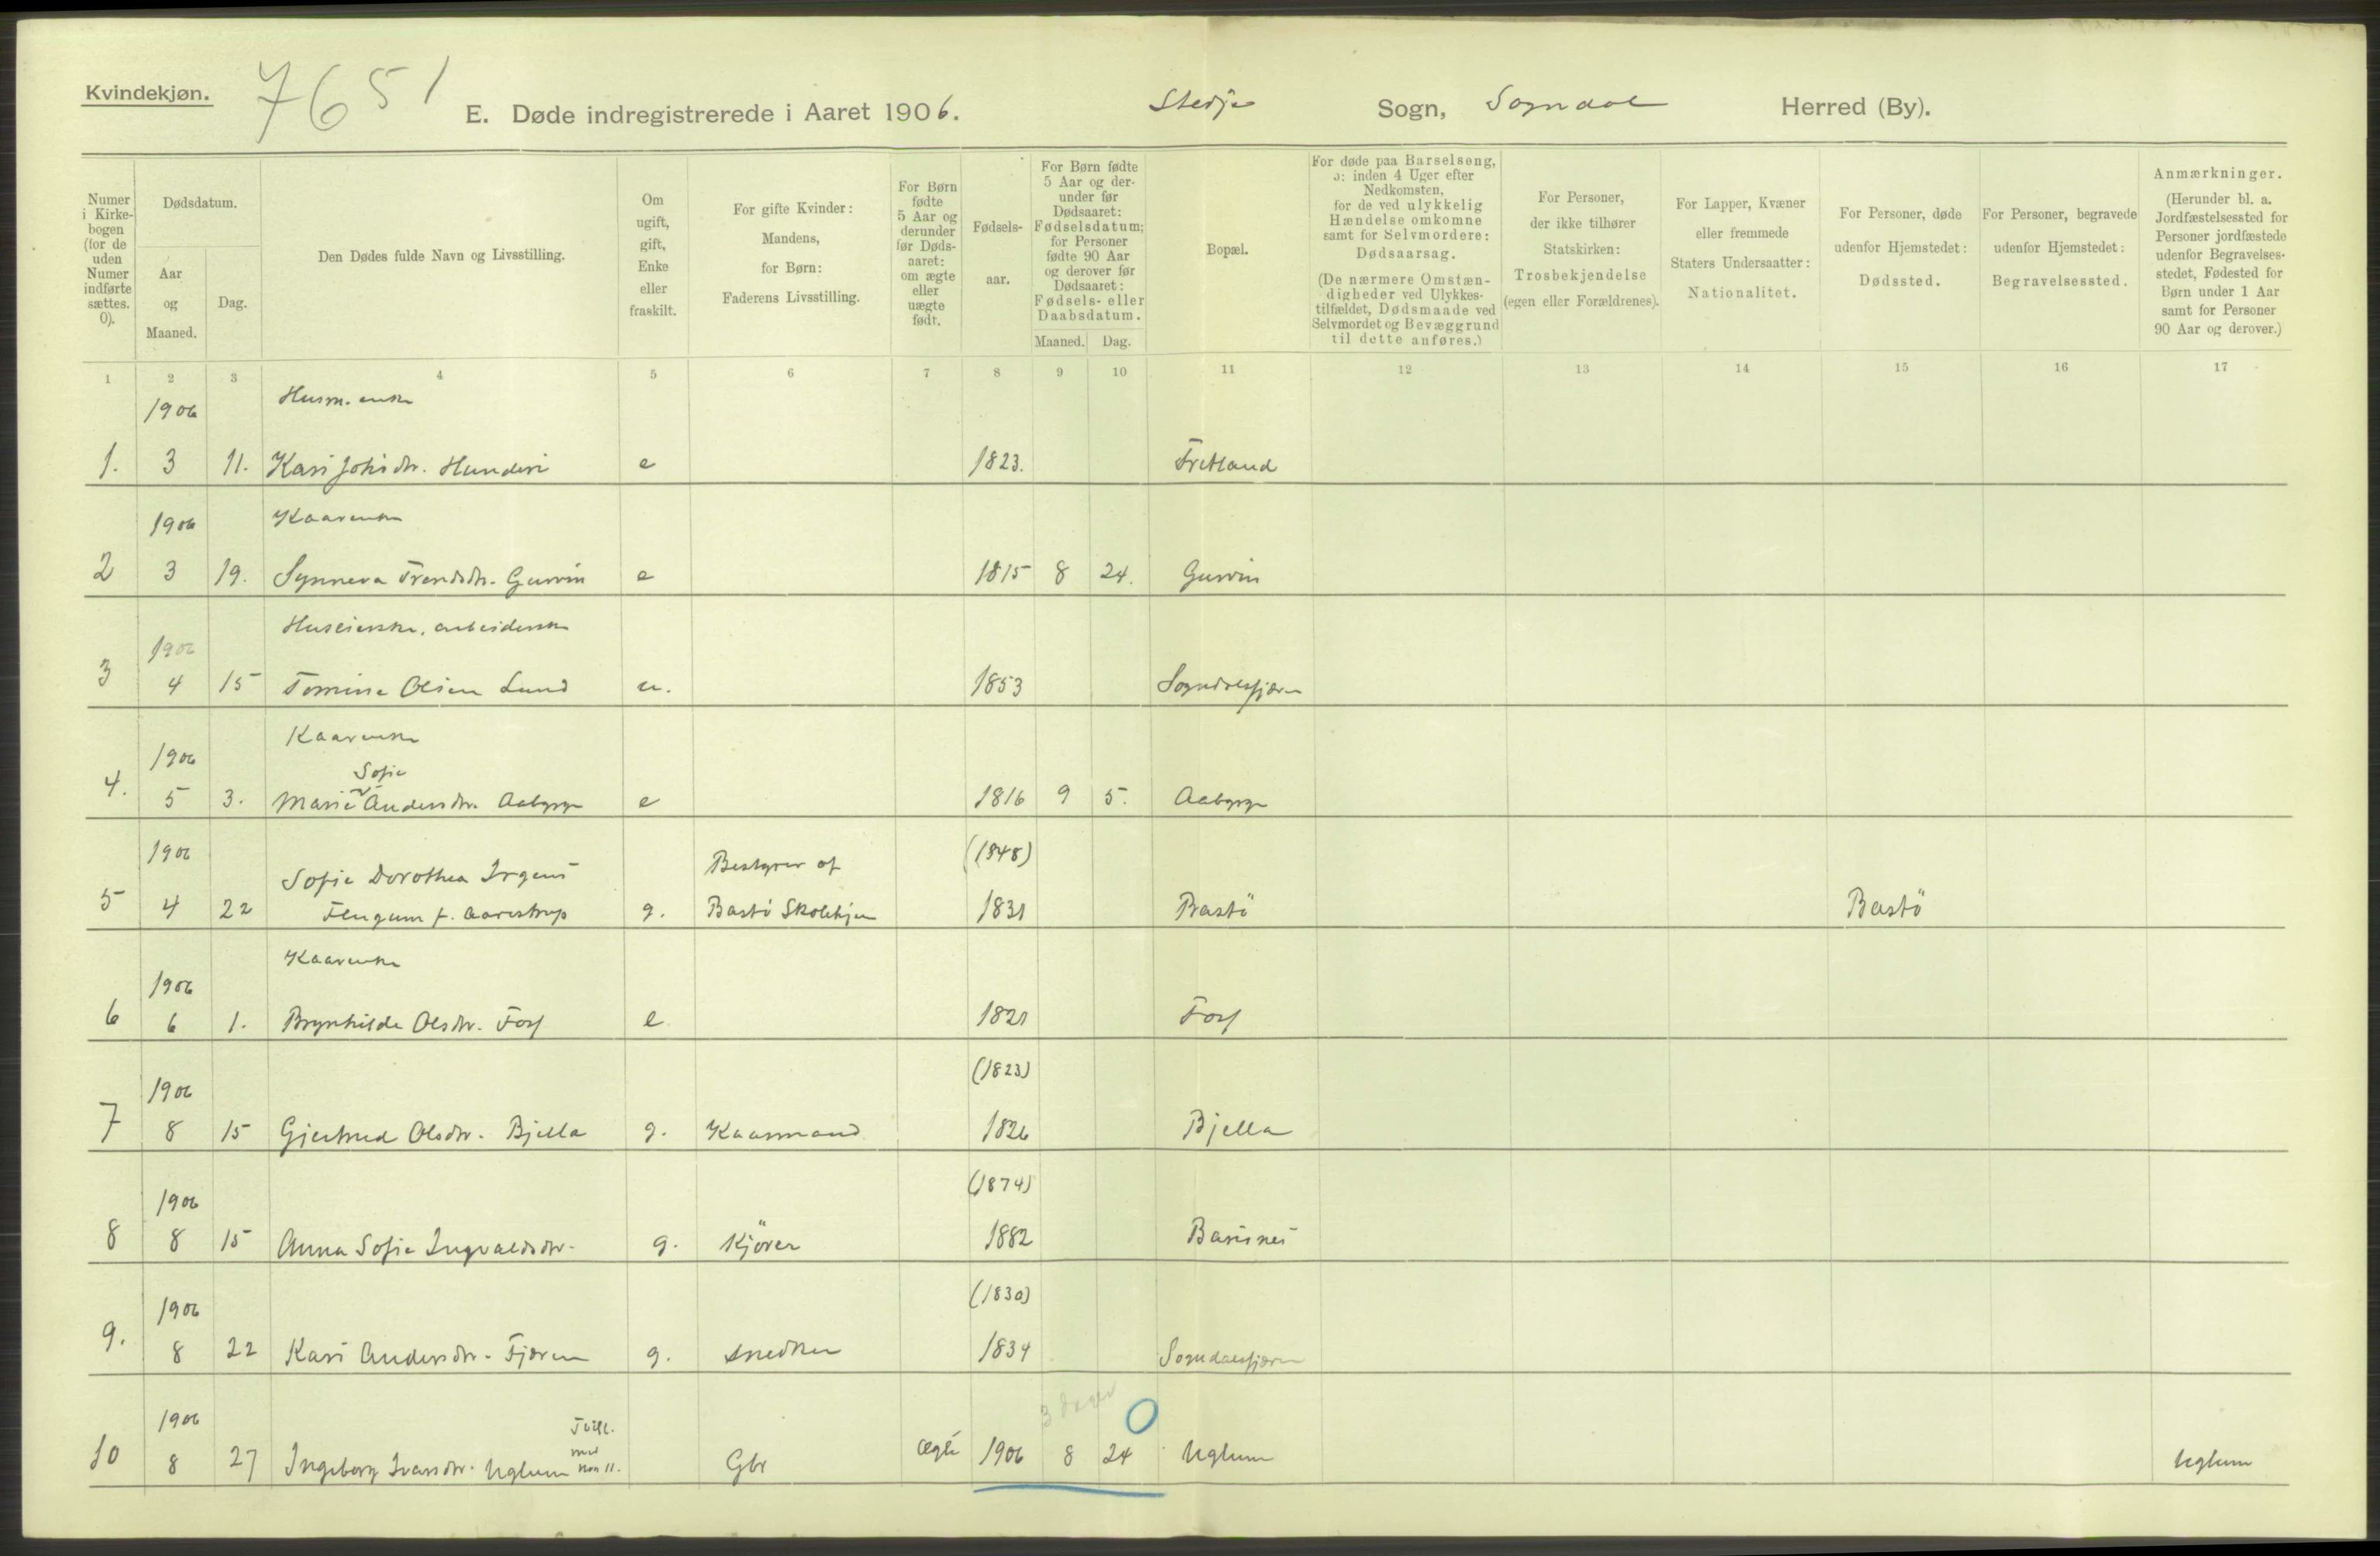 Kvindekjøn.
7651
E. Døde indregistrerede i Aaret 1906. Stedje Sogn, Sogndal Herred (By).
Numer i Kirke-bogen (for de uden Numer indførte sættes. 0).
Dødsdatum.
Aar og Maaned.
Dag.
Den Dødes fulde Navn og Livsstilling.
Om ugift, gift, Enke eller fraskilt.
For gifte Kvinder: Mandens, for Børn: Faderens Livsstilling.
For Børn fødte 5 Aar og derunder før Døds-aaret: om ægte eller uægte født.
Fødsels-aar.
For Børn fødte 5 Aar og der-under før Dødsaaret: Fødselsdatum; for Personer fødte 90 Aar og derover før Dødsaaret: Fødsels- eller Daabsdatum.
Maaned. Dag.
Bopæl.
For døde paa Barselseng, ɔ: inden 4 Uger efter Nedkomsten, for de ved ulykkelig Hændelse omkomne samt for Selvmordere: Dødsaarsag. (De nærmere Omstæn-digheder ved Ulykkes-tilfældet, Dødsmaade ved Selvmordet og Bevæggrund til dette anføres.)
For Personer, der ikke tilhører Statskirken: Trosbekjendelse (egen eller Forældrenes).
For Lapper, Kvæner eller fremmede Staters Undersaatter: Nationalitet.
For Personer, døde udenfor Hjemstedet: Dødssted.
For Personer, begravede udenfor Hjemstedet: Begravelsessted.
Anmærkninger. (Herunder bl. a. Jordfæstelsessted for Personer jordfæstede udenfor Begravelses-stedet, Fødested for Børn under 1 Aar samt for Personer 90 Aar og derover.)
1 2 3 4 5 6 7 8 9 10 11 12 13 14 15 16 17
1906 Husm. enke
1. 3 11. Kari Johsdtr. Hunderi e 1823. Fretland
1906 Kaarenke
2 3 19. Synneva Trondsdtr. Gurvin e 1815 8 24. Gurvin
1906 Huseierske, arbeiderske
3 4 15 Tomine Olsen Lund u. 1853 Sogndalsfjæren
1906 Kaarenke
Sofie
4. 5 3. Marie Andersdtr. Aabyrge e 1816 9 5. Aabyrge
1906 Sofie Dorothea Irgens Bestyrer af (1848)
5 4 22 Flugum f. Aarestrup g. Bastö Skolehjem 1831 Bastö Bastö
1906 Kaarenke
6 6 1. Brynhilde Olsdtr. Foss e 1821 Foss
1906 (1823)
7 8 15 Gjertrud Olsdtr. Bjella g. Kaarmand 1826 Bjella
1906 (1874)
8 8 15 Anna Sofie Ingvaldsdtr. g. Kjörer 1882 Barsnes
1906 (1830)
9. 8 22 Kari Andersdtr. Fjæren g. Snedker 1834 Sogndalsfjæren
3 dager
1906 Tvill. med
10 8 27 Ingeborg Ivarsdtr. Uglum non 11. Gbr ægte 1906 8 24 Uglum Uglum